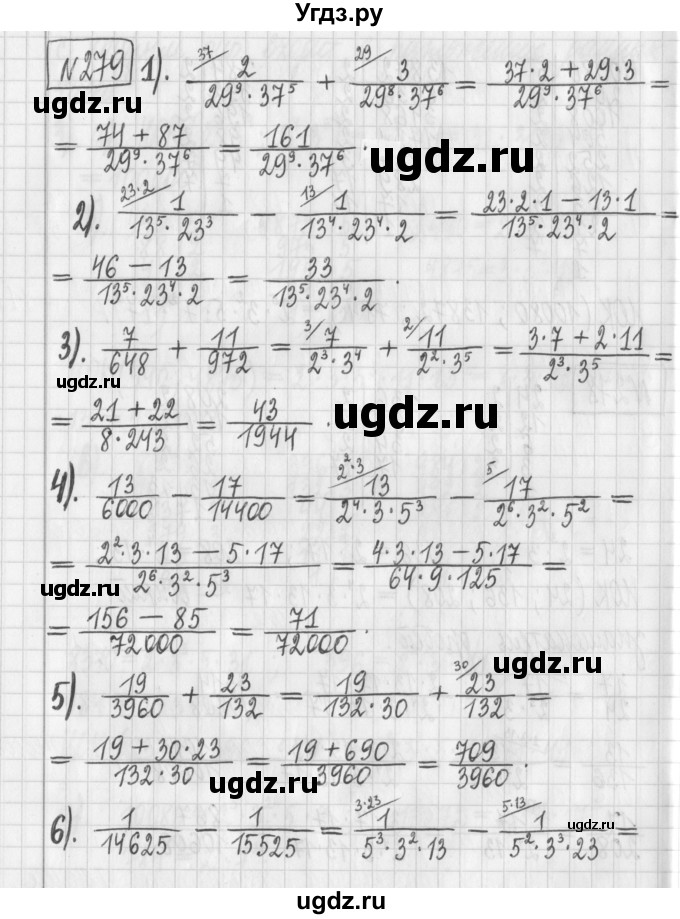 Угдз.ру
№279 1). 37/ 2/(29⁹·37⁵) + 29/ 3/(29⁸·37⁶) = (37·2 + 29·3)/(29⁹·37⁶) =
ugdz.ru
= (74 + 87)/(29⁹·37⁶) = 161/(29⁹·37⁶).
ugdz.ru
2). 23·2/ 1/(13⁵·23³) − 13/ 1/(13⁴·23⁴·2) = (23·2·1 − 13·1)/(13⁵·23⁴·2) =
= (46 − 13)/(13⁵·23⁴·2) = 33/(13⁵·23⁴·2).
3). 7/648 + 11/972 = 3/ 7/(2³·3⁴) + 2/ 11/(2²·3⁵) = (3·7 + 2·11)/(2³·3⁵) =
ugdz.ru
= (21 + 22)/(8·243) = 43/1944.
ugdz.ru
4). 13/6000 − 17/14400 = 2²·3/ 13/(2⁴·3·5³) − 5/ 17/(2⁶·3²·5²) =
= (2²·3·13 − 5·17)/(2⁶·3²·5³) = (4·3·13 − 5·17)/(64·9·125) =
ugdz.ru
= (156 − 85)/72000 = 71/72000.
ugdz.ru
5). 19/3960 + 23/132 = 19/(132·30) + 30/ 23/132 =
= (19 + 30·23)/(132·30) = (19 + 690)/3960 = 709/3960.
ugdz.ru
6). 1/14625 − 1/15525 = 3·23/ 1/(5³·3²·13) − 5·13/ 1/(5²·3³·23) =
ugdz.ru
ugdz.ru